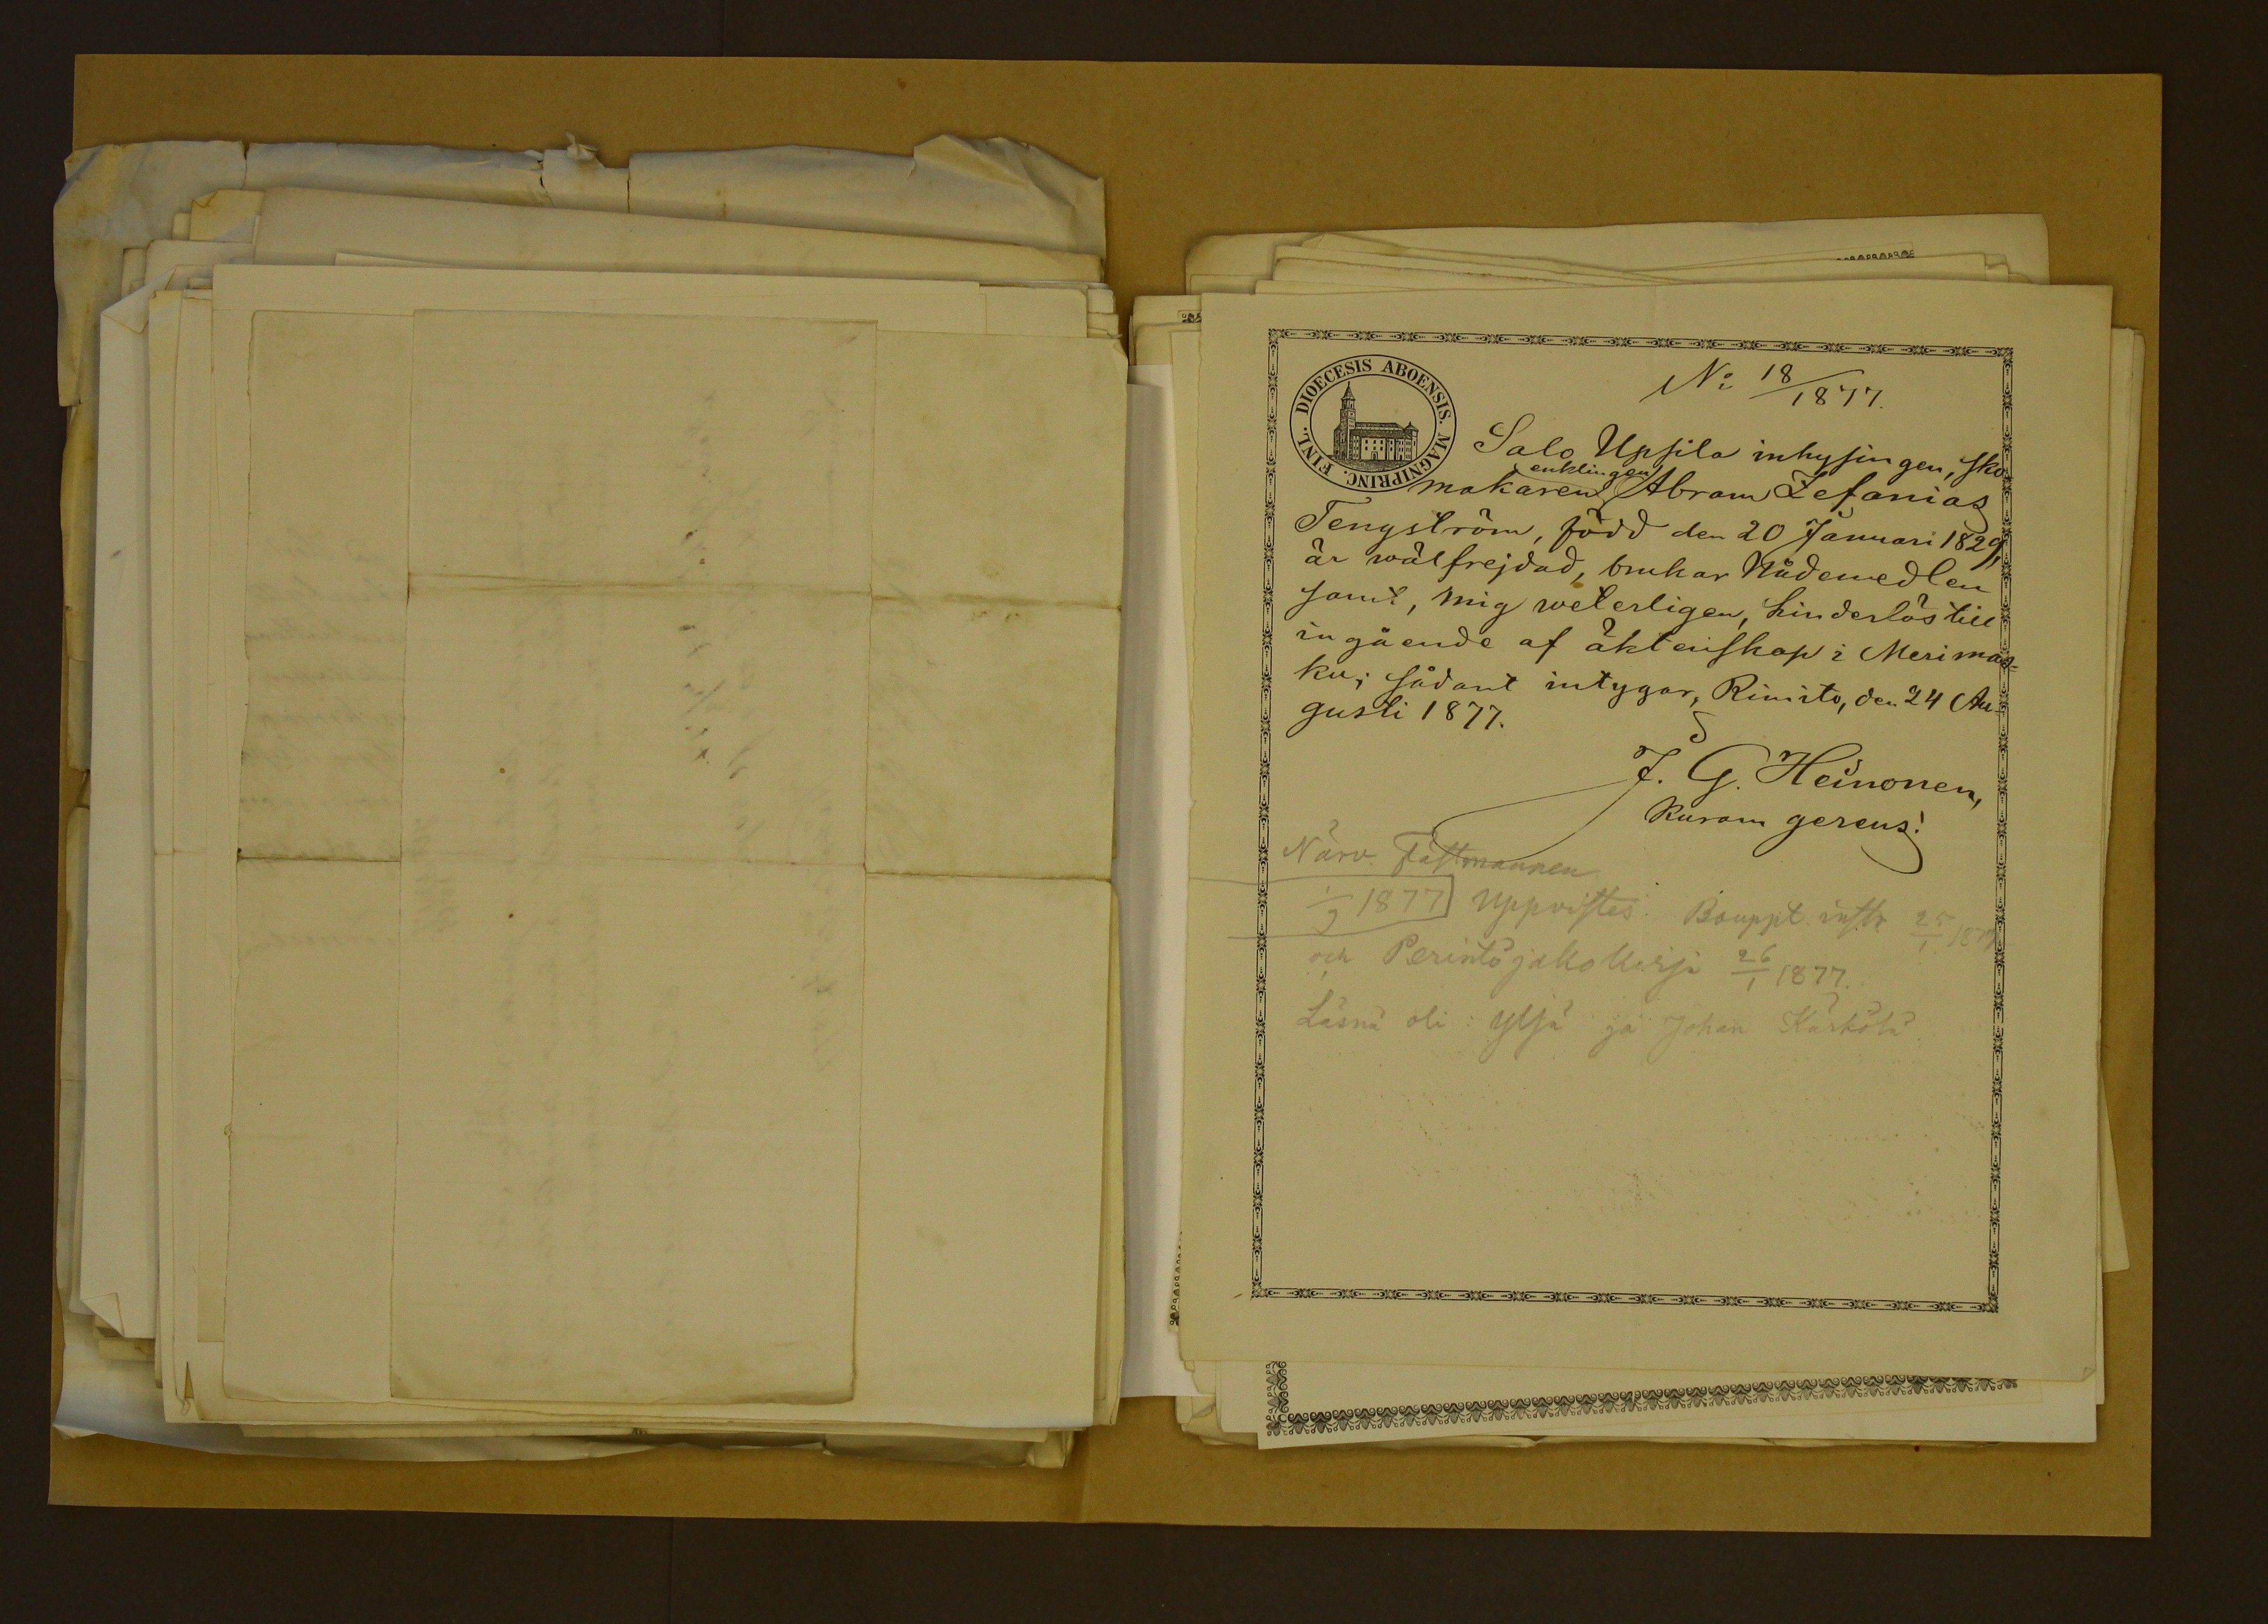 DIOECESIS ABOENSIS. MAGNIPRINC. FINL.
N: 18/1877.
Salo Uppila inhysingen, sko
enklingen
makaren Abram Zefanias
Tengström, född den 20 Januari 1829,
är wälfrejdad, brukar Nådemedlen
samt, mig weterligen, hinderlös till
ingående af äktenskap i Merimas-
ku; sådant intygar, Rimito, den 24 Au-
gusti 1877.
J. G. Heinonen,
Kuram gerens.
Närv. Fästmannen
1/9 1877 Uppvistes. Bouppt. instr 25/1 1877
och Perintöjakokirja 26/1 1877.
Läsnä oli: Yljä ja Johan Kärkölä